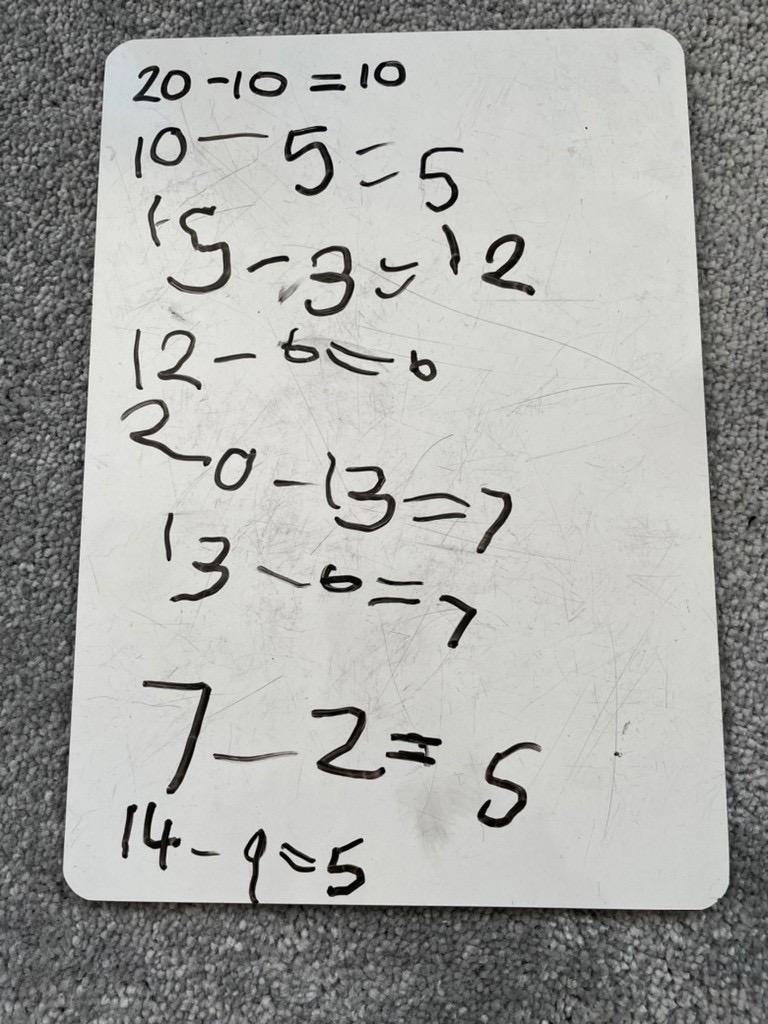 20 - 10 = 10
10 - 5 = 5
15 - 3 = 12
12 - 6 = 6
20 - 13 = 7
13 - 6 = 7
7 - 2 = 5
14 - 9 = 5